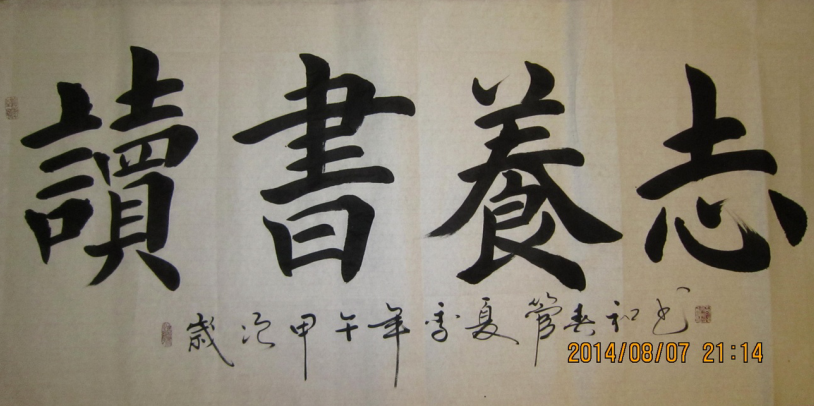 讀書養志
歲次甲午年季夏管春和书
2014/08/07 21:14